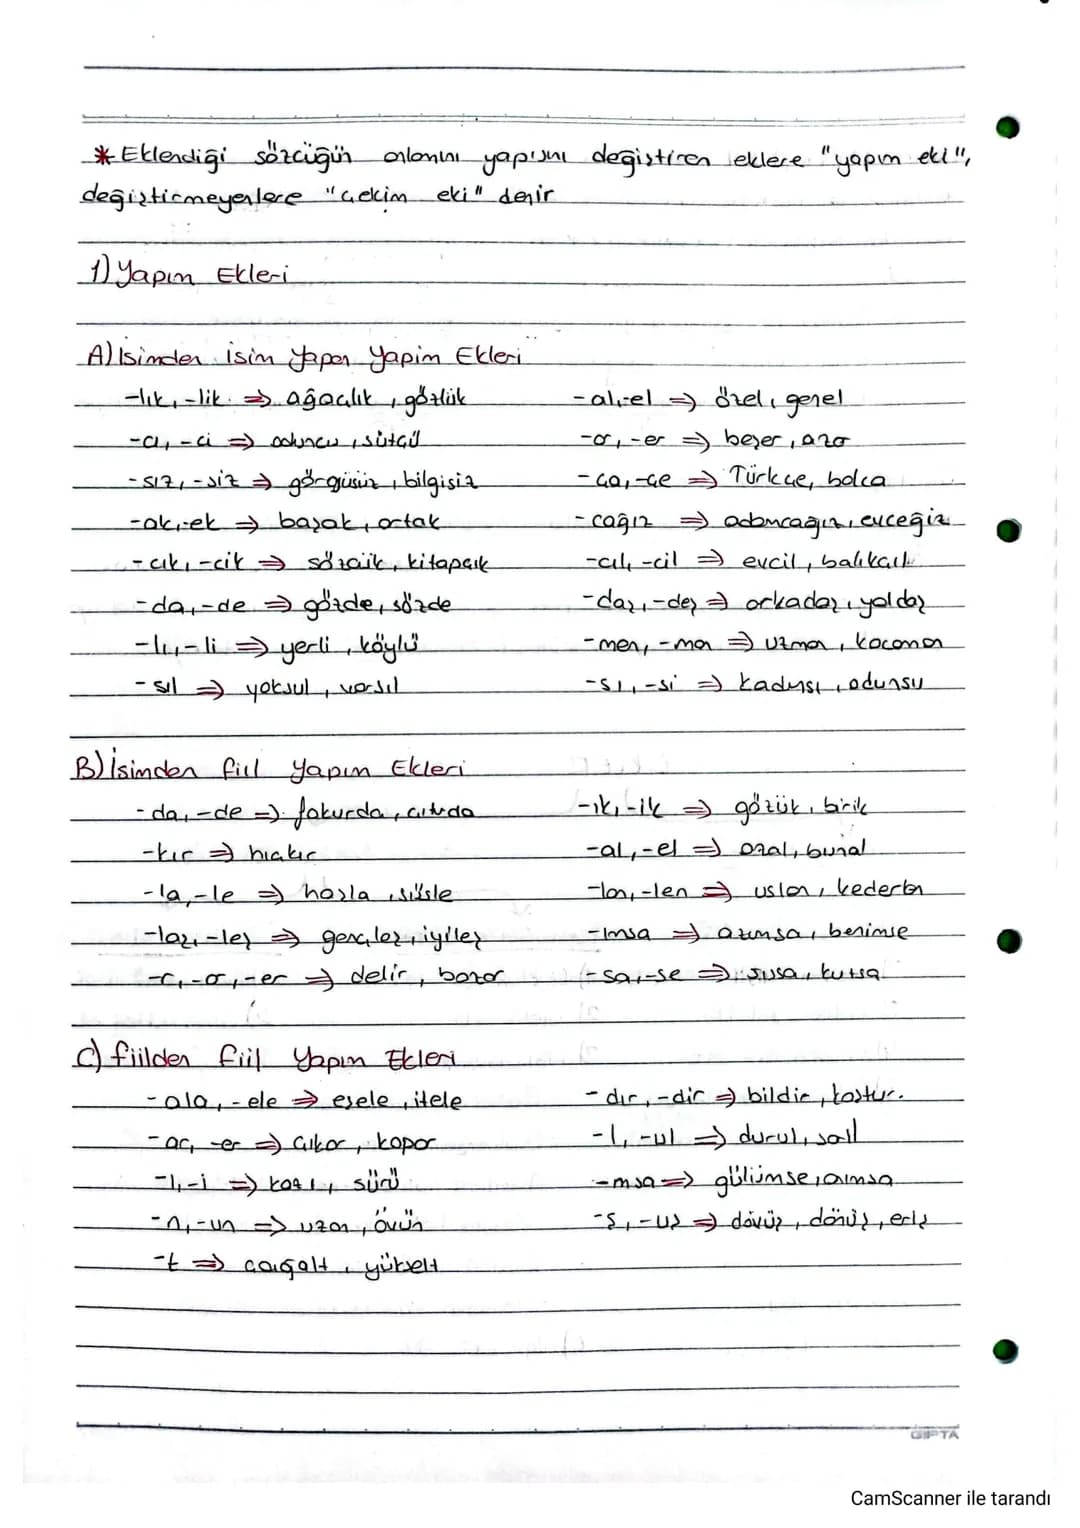 * Eklendiği sözcüğün anlamını yapısını değiştiren eklere "yapım eki",
değiştirmeyenlere "çekim eki" denir
1) Yapım Ekleri
A) İsimden isim Yapan Yapım Ekleri
-lık, -lik ⇒ ağaçlık, gözlük
-al, -el ⇒ özel, genel
-cı, -ci ⇒ oduncu, sütçü
-ar, -er ⇒ beşer, azar
-sız, -siz ⇒ görgüsüz, bilgisiz
-ça, -çe ⇒ Türkçe, bolca
-ak, -ek ⇒ başak, ortak
-cağız ⇒ adamcağız, evceğiz
-cık, -cik ⇒ sözcük, kitapçık
-cıl, -cil ⇒ evcil, balıkçıl
-da, -de ⇒ gözde, sözde
-daş, -deş ⇒ arkadaş, yoldaş
-lı, -li ⇒ yerli, köylü
-men, -man ⇒ uzman, kocaman
-sıl ⇒ yoksul, varsıl
-sı, -si ⇒ kadınsı, odunsu
B) İsimden fiil Yapım Ekleri
-da, -de ⇒ fokurda, çıtırda
-ık, -ik ⇒ gözük, birik
-kır ⇒ hıçkır
-al, -el ⇒ azal, bunal
-la, -le ⇒ haşla, süsle
-lan, -len ⇒ uslan, kederlen
-laş, -leş ⇒ gençleş, iyileş
-ımsa ⇒ azımsa, benimse
-r, -ar, -er ⇒ delir, bozar
-sa, -se ⇒ susa, kutsa
C) fiilden fiil Yapım Ekleri
-ala, -ele ⇒ eşele, itele
-dır, -dir ⇒ bildir, koştur.
-ar, -er ⇒ çıkar, kopar
-l, -ul ⇒ durul, sarıl
-ı, -i ⇒ kazı, sürü
-msa ⇒ gülümse, anımsa
-n, -un ⇒ uzan, övün
-ş, -uş ⇒ dövüş, dönüş, eriş
-t ⇒ çoğalt, yükselt
GIPTA
CamScanner ile tarandı